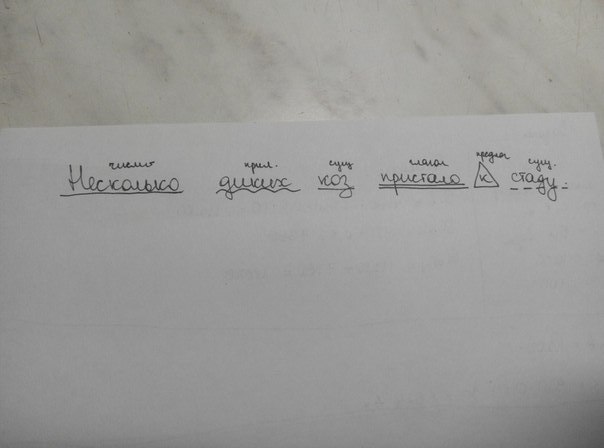 числит прил. сущ глагол предлог сущ.
Несколько диких коз пристало к стаду.